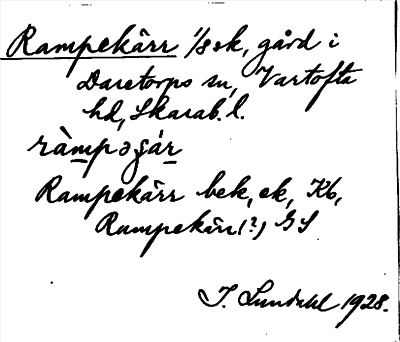 Rampekärr 1/8 sk, gård i
Daretorps sn, Vartofta
hd, Skarab. l.
ràmpəʃár
Rampekärr bek, ek, Kb,
Rumpekärr(?) GS
I. Lundahl 1928.